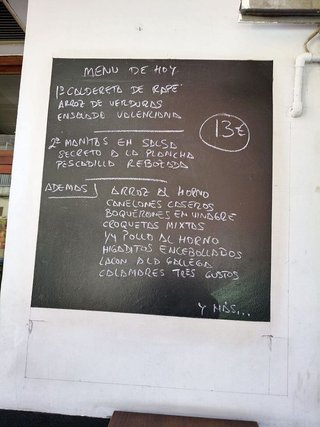 MENU DE HOY
1º CALDERETA DE RAPE
ARROZ DE VERDURAS
ENSALADE VALENCIANA
13€
2º MANITAS EN SALSA
SECRETO A LA PLANCHA
PESCADILLA REBOZADA
ADEMAS ARROZ AL HORNO
CANELONES CASEROS
BOQUERONES EN VINAGRE
CROQUETAS MIXTAS
1/4 POLLO AL HORNO
HIGADITOS ENCEBOLLADOS
LACON A LA GALLEGA
CALAMARES TRES GUSTOS
Y MÁS...